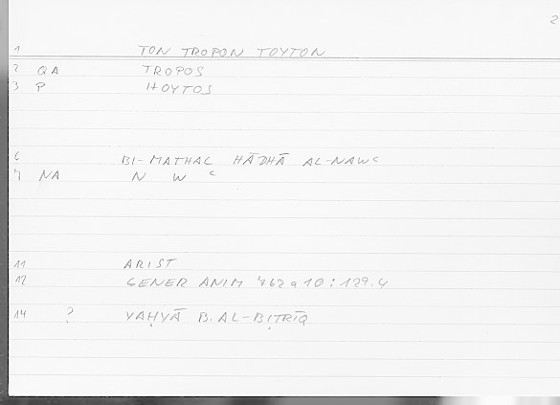 2
1 TON TROPON TOYTON
2 QA TROPOS
3 P HOYTOS
6 BI-MATHAL HĀDHĀ AL-NAWᶜ
7 NA N W ᶜ
11 ARIST
12 GENER ANIM 762a10:129.4
14 ? YAḤYĀ B. AL-BIṬRĪQ